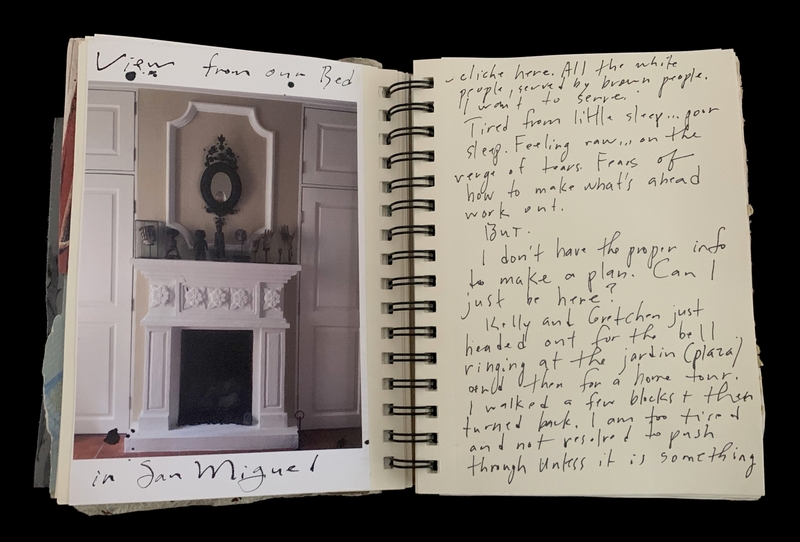 View from our Bed
in San Miguel
cliche here. All the white
people, served by brown people.
I want to serve.
Tired from little sleep... poor
sleep. Feeling raw... on the
verge of tears. Fears of
how to make what's ahead
work out.
But.
I don't have the proper info
to make a plan. Can I
just be here?
Kelly and Gretchen just
headed out for the bell
ringing at the jardin (plaza)
and then for a home tour.
I walked a few blocks + then
turned back. I am too tired
and not resolved to push
through unless it is something